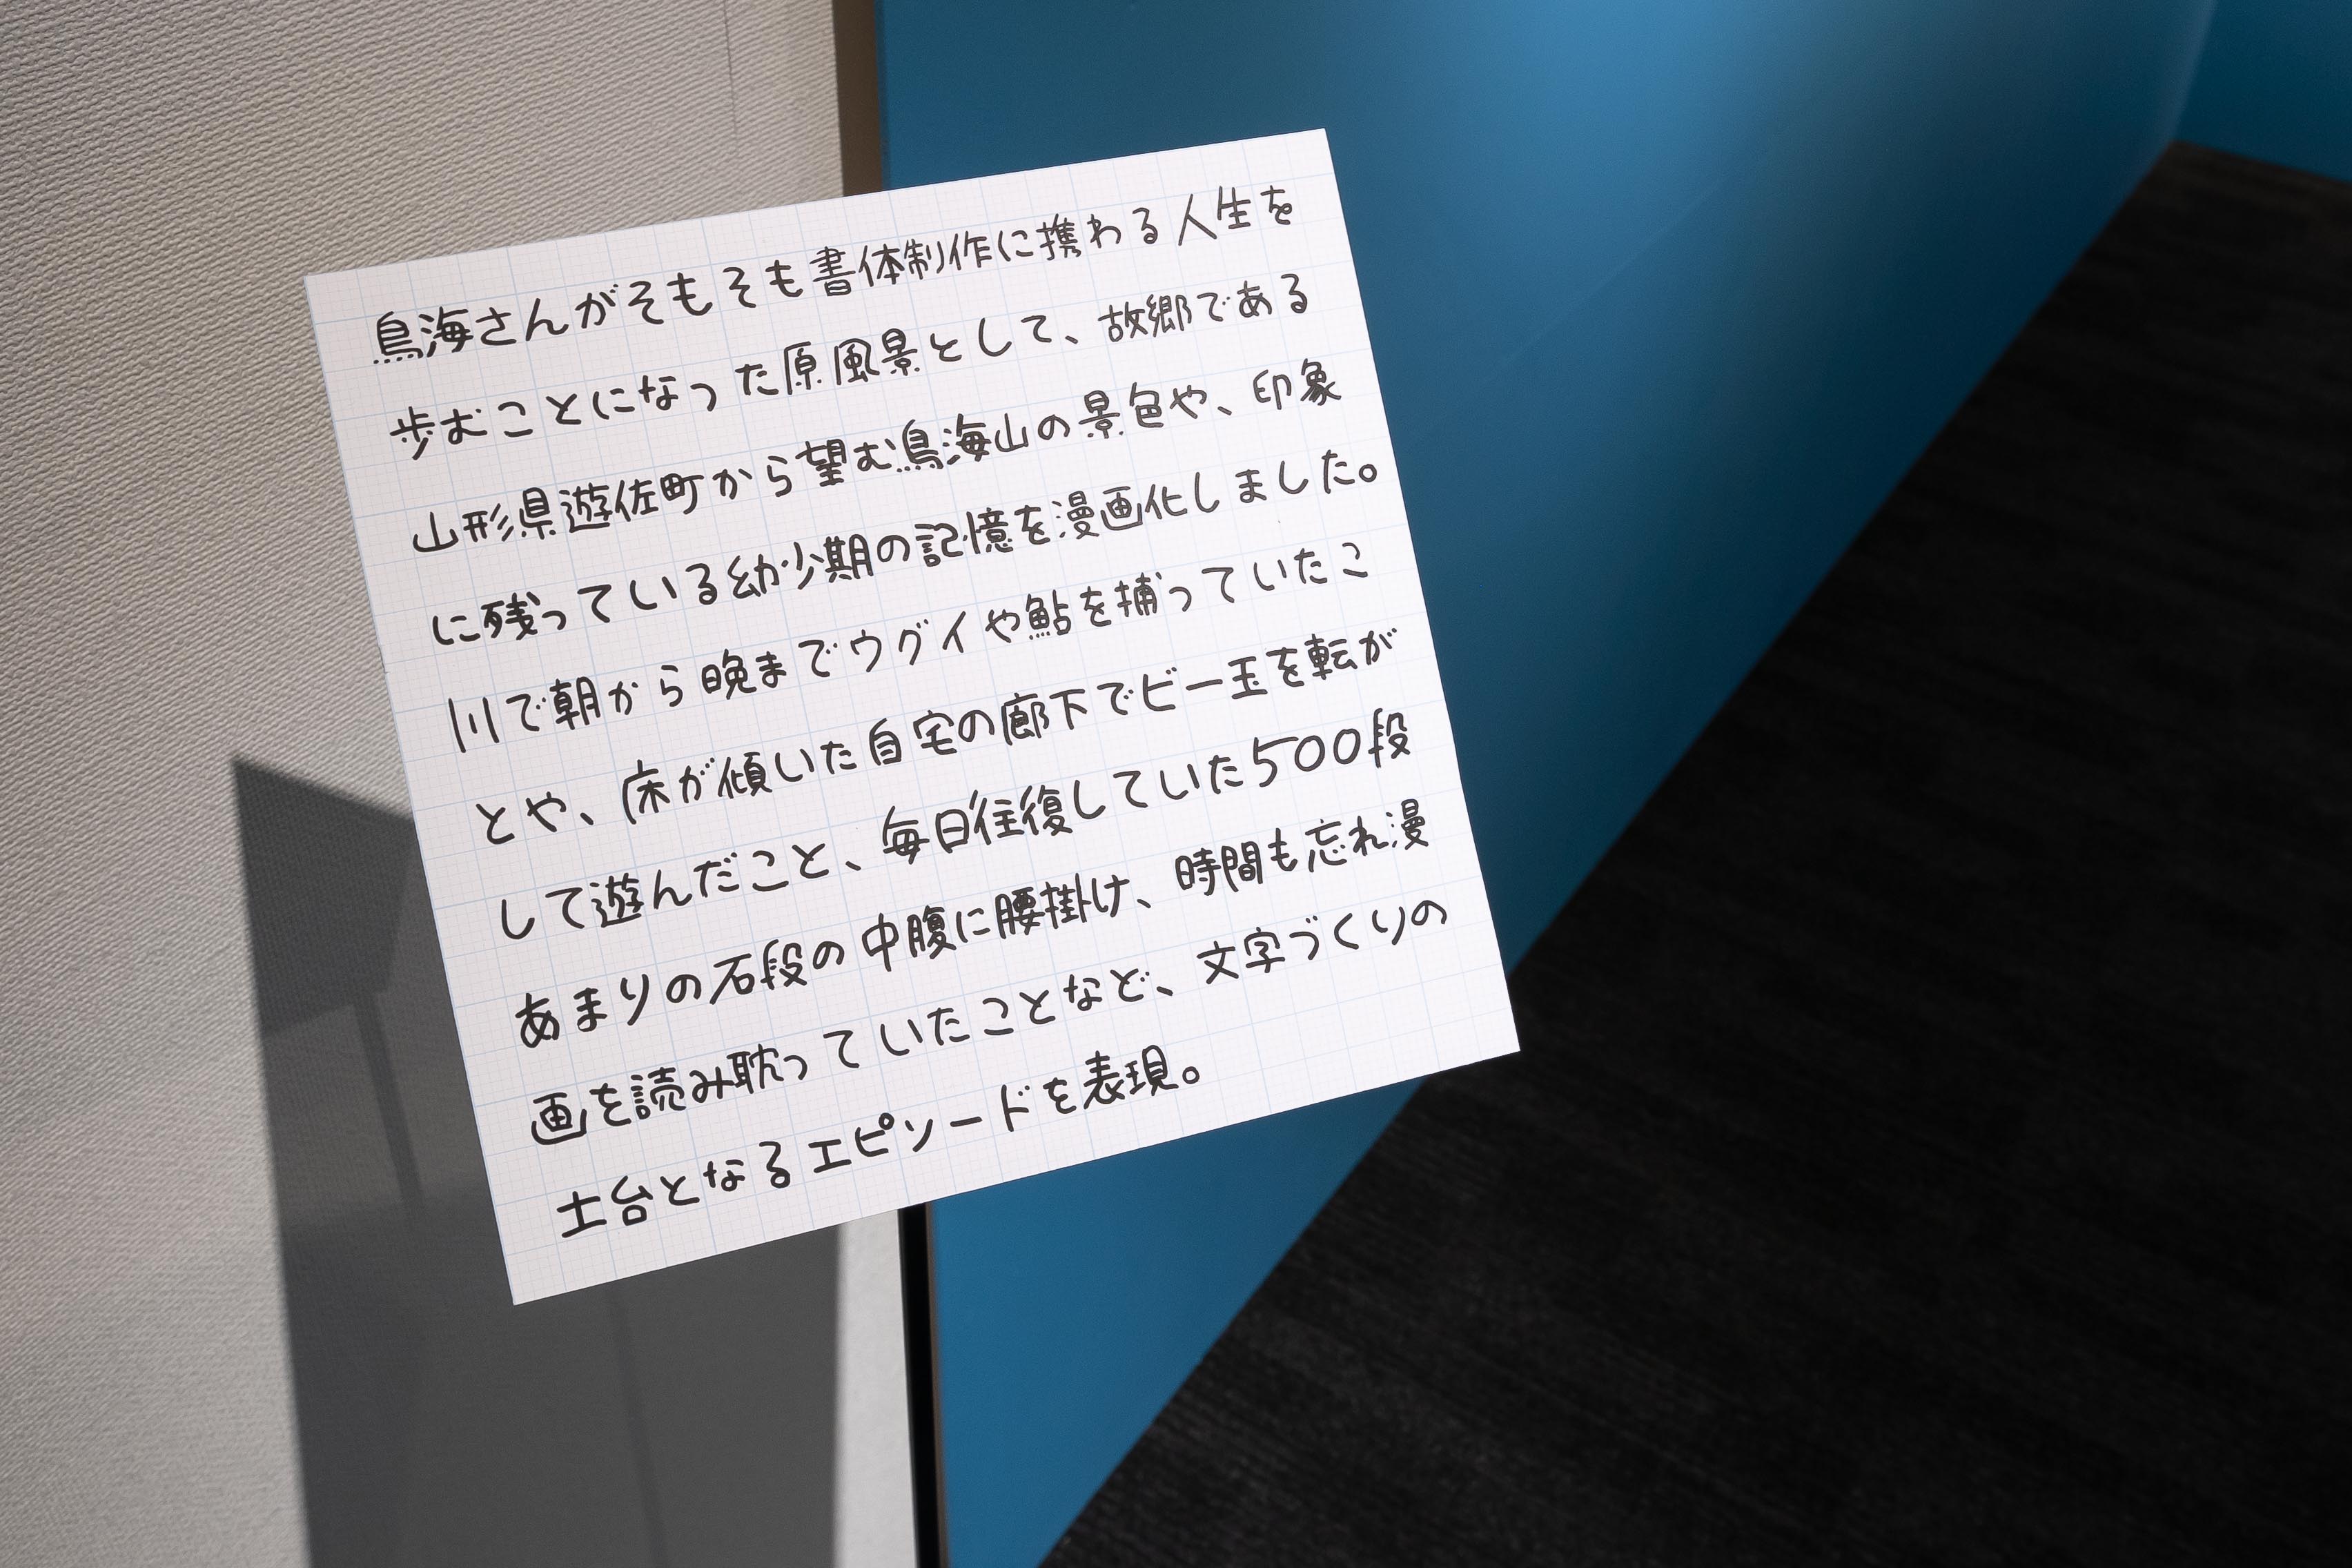 鳥海さんがそもそも書体制作に携わる人生を
歩むことになった原風景として、故郷である
山形県遊佐町から望む鳥海山の景色や、印象
に残っている幼少期の記憶を漫画化しました。
川で朝から晩までウグイや鮎を捕っていたこ
とや、床が傾いた自宅の廊下でビー玉を転が
して遊んだこと、毎日往復していた500段
あまりの石段の中腹に腰掛け、時間も忘れ漫
画を読み耽っていたことなど、文字づくりの
土台となるエピソードを表現。